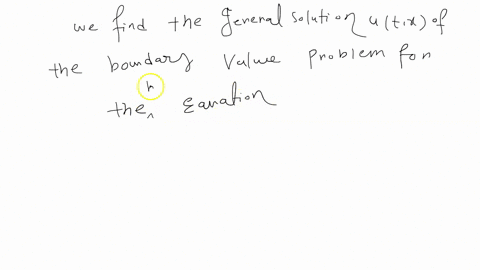 we find the general solution u(t,x) of
the boundary value problem for
h
the, Equation